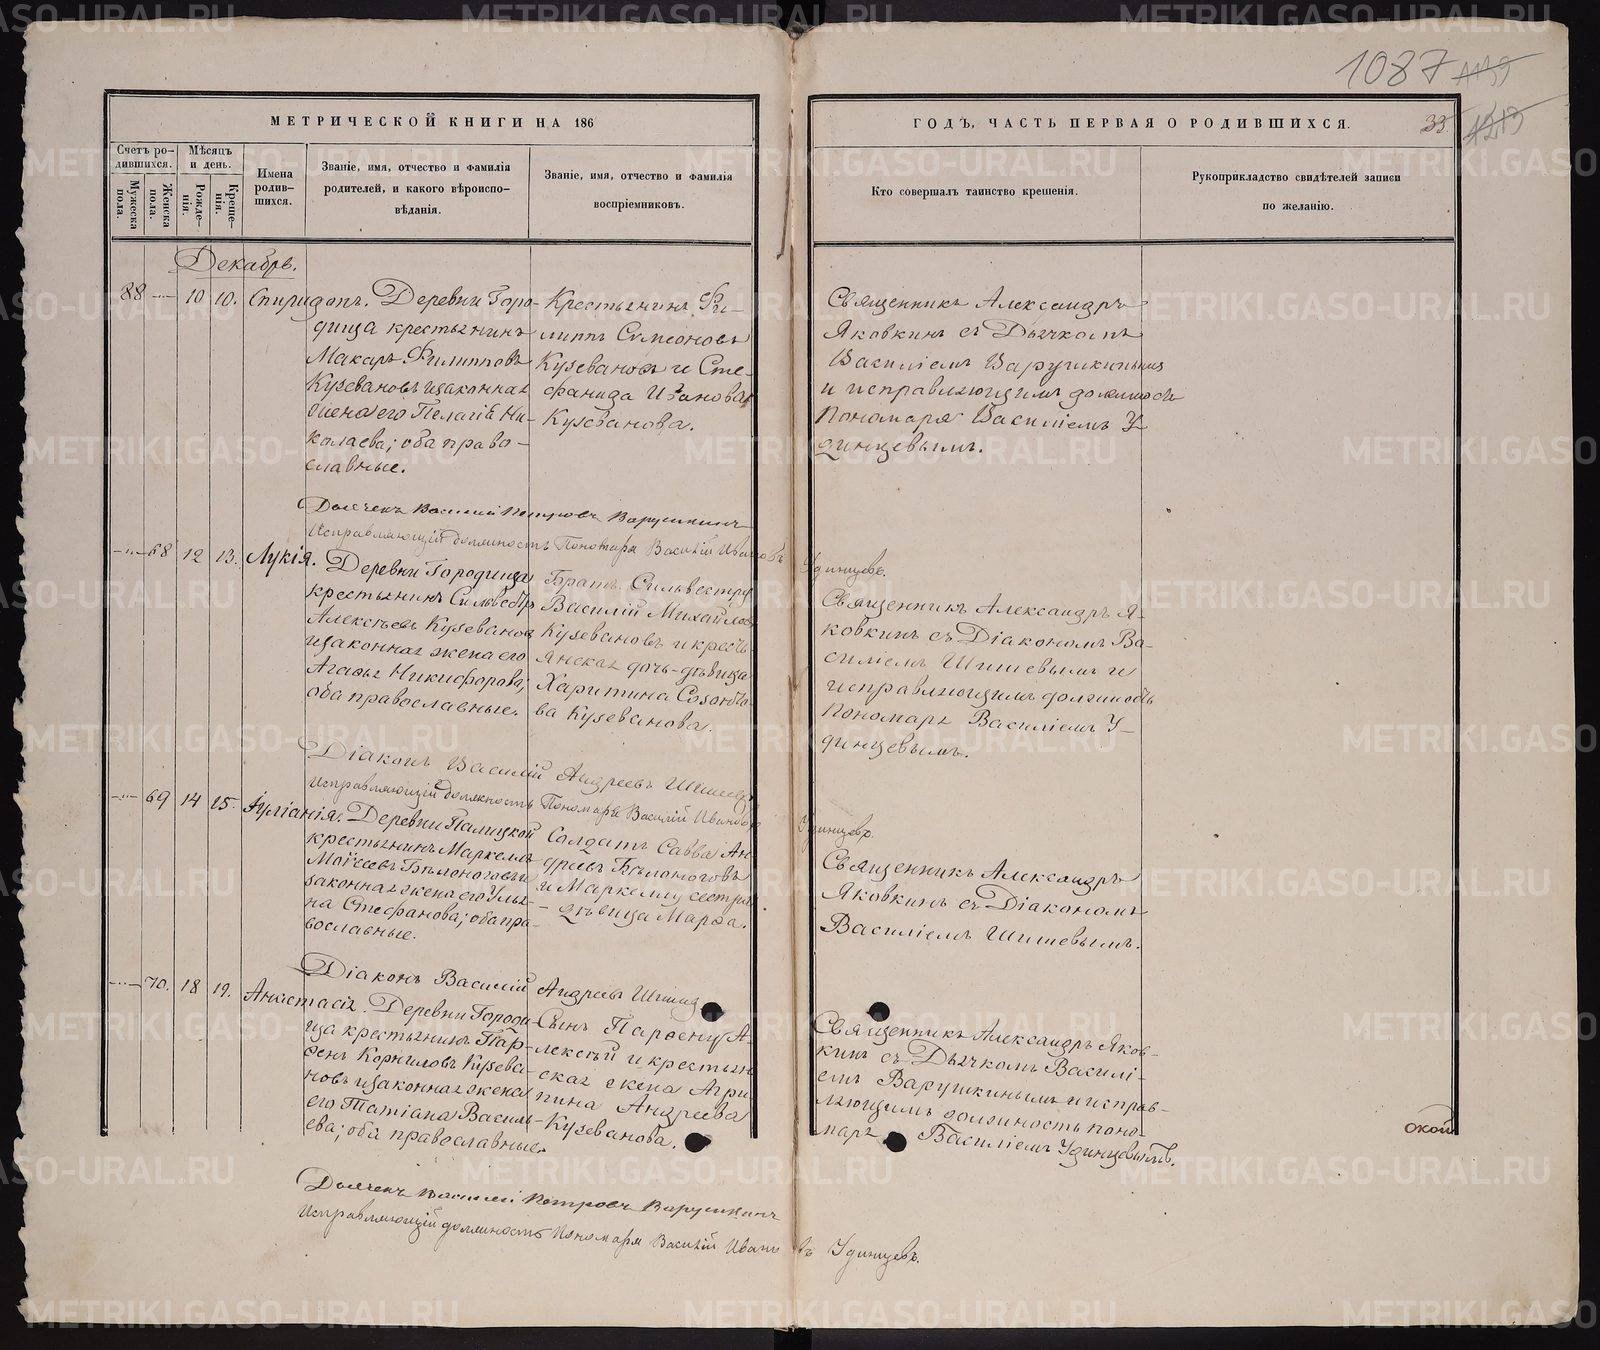 1087
МЕТРИЧЕСКОЙ КНИГИ НА 186
ГОДЪ, ЧАСТЬ ПЕРВАЯ О РОДИВШИХСЯ.
33
Счетъ ро-
дившихся.
Мужеска пола.
Женска пола.
Мѣсяцъ и день.
Рожде-
нія.
Креще-
нія.
Имена
родив-
шихся.
Званіе, имя, отчество и фамилія
родителей, и какого вѣроиспо-
вѣданія.
Званіе, имя, отчество и фамилія
воспріемниковъ.
Кто совершалъ таинство крещенія.
Рукоприкладство свидѣтелей записи
по желанію.
Декабрь.
88 10 10. Спиридонъ.
Деревни Горо-
дища крестьянинъ
Макаръ Филипповъ
Кузевановъ и законная
жена его Пелагія Ни-
колаева; оба право-
славные.
Крестьянинъ Фи-
липпъ Симеоновъ
Кузевановъ и Сте-
фанида Иванова
Кузеванова.
Священникъ Александръ
Яковкинъ съ Дьячкомъ
Василіемъ Варушкинымъ
и исправляющимъ должность
Пономаря Василіемъ У-
динцевымъ.
Дьячекъ Василій Петровъ Варушкинъ
Исправляющій должность Пономаря Василій Ивановъ Удинцевъ.
68 12 13. Лукія.
Деревни Городища
крестьянинъ Сильвестръ
Алексѣевъ Кузевановъ
и законная жена его
Агафья Никифорова;
оба православные.
Братъ Сильвестру
Василій Михайловъ
Кузевановъ и кресть-
янская дочь-дѣвица
Харитина Созонто-
ва Кузеванова.
Священникъ Александръ Я-
ковкинъ съ Діакономъ Ва-
силіемъ Шишевымъ и
исправляющимъ должность
Пономаря Василіемъ У-
динцевымъ.
Діаконъ Василій Андреевъ Шишевъ
Исправляющій должность Пономаря Василій Ивановъ Удинцевъ.
69 14 15. Іуліанія.
Деревни Палицкой
крестьянинъ Маркелъ
Моѵсеевъ Бѣлоноговъ и
законная жена его Улья-
на Стефанова; оба пра-
вославные.
Солдатъ Савва Ан-
дреевъ Бѣлоноговъ
и Маркелу сестра
- дѣвица Марѳа.
Священникъ Александръ
Яковкинъ съ Діакономъ
Василіемъ Шишевымъ.
Діаконъ Василій Андреевъ Шишевъ
70. 18 19. Анастасія.
Деревни Городи-
ща крестьянинъ Пар-
ѳенъ Корниловъ Кузева-
новъ и законная жена
его Татіана Василь-
ева; оба православные.
Сынъ Парѳену А-
лексѣй и крестьян-
ская жена Агри-
пина Андреева
Кузеванова.
Священникъ Александръ Яков-
кинъ съ Дьячкомъ Василі-
емъ Варушкинымъ и исправ-
ляющимъ должность поно-
маря Василіемъ Удинцевымъ.
ской
Дьячекъ Василій Петровъ Варушкинъ
Исправляющій должность Пономаря Василій Ивановъ Удинцевъ.
METRIKI.GASO-URAL.RU